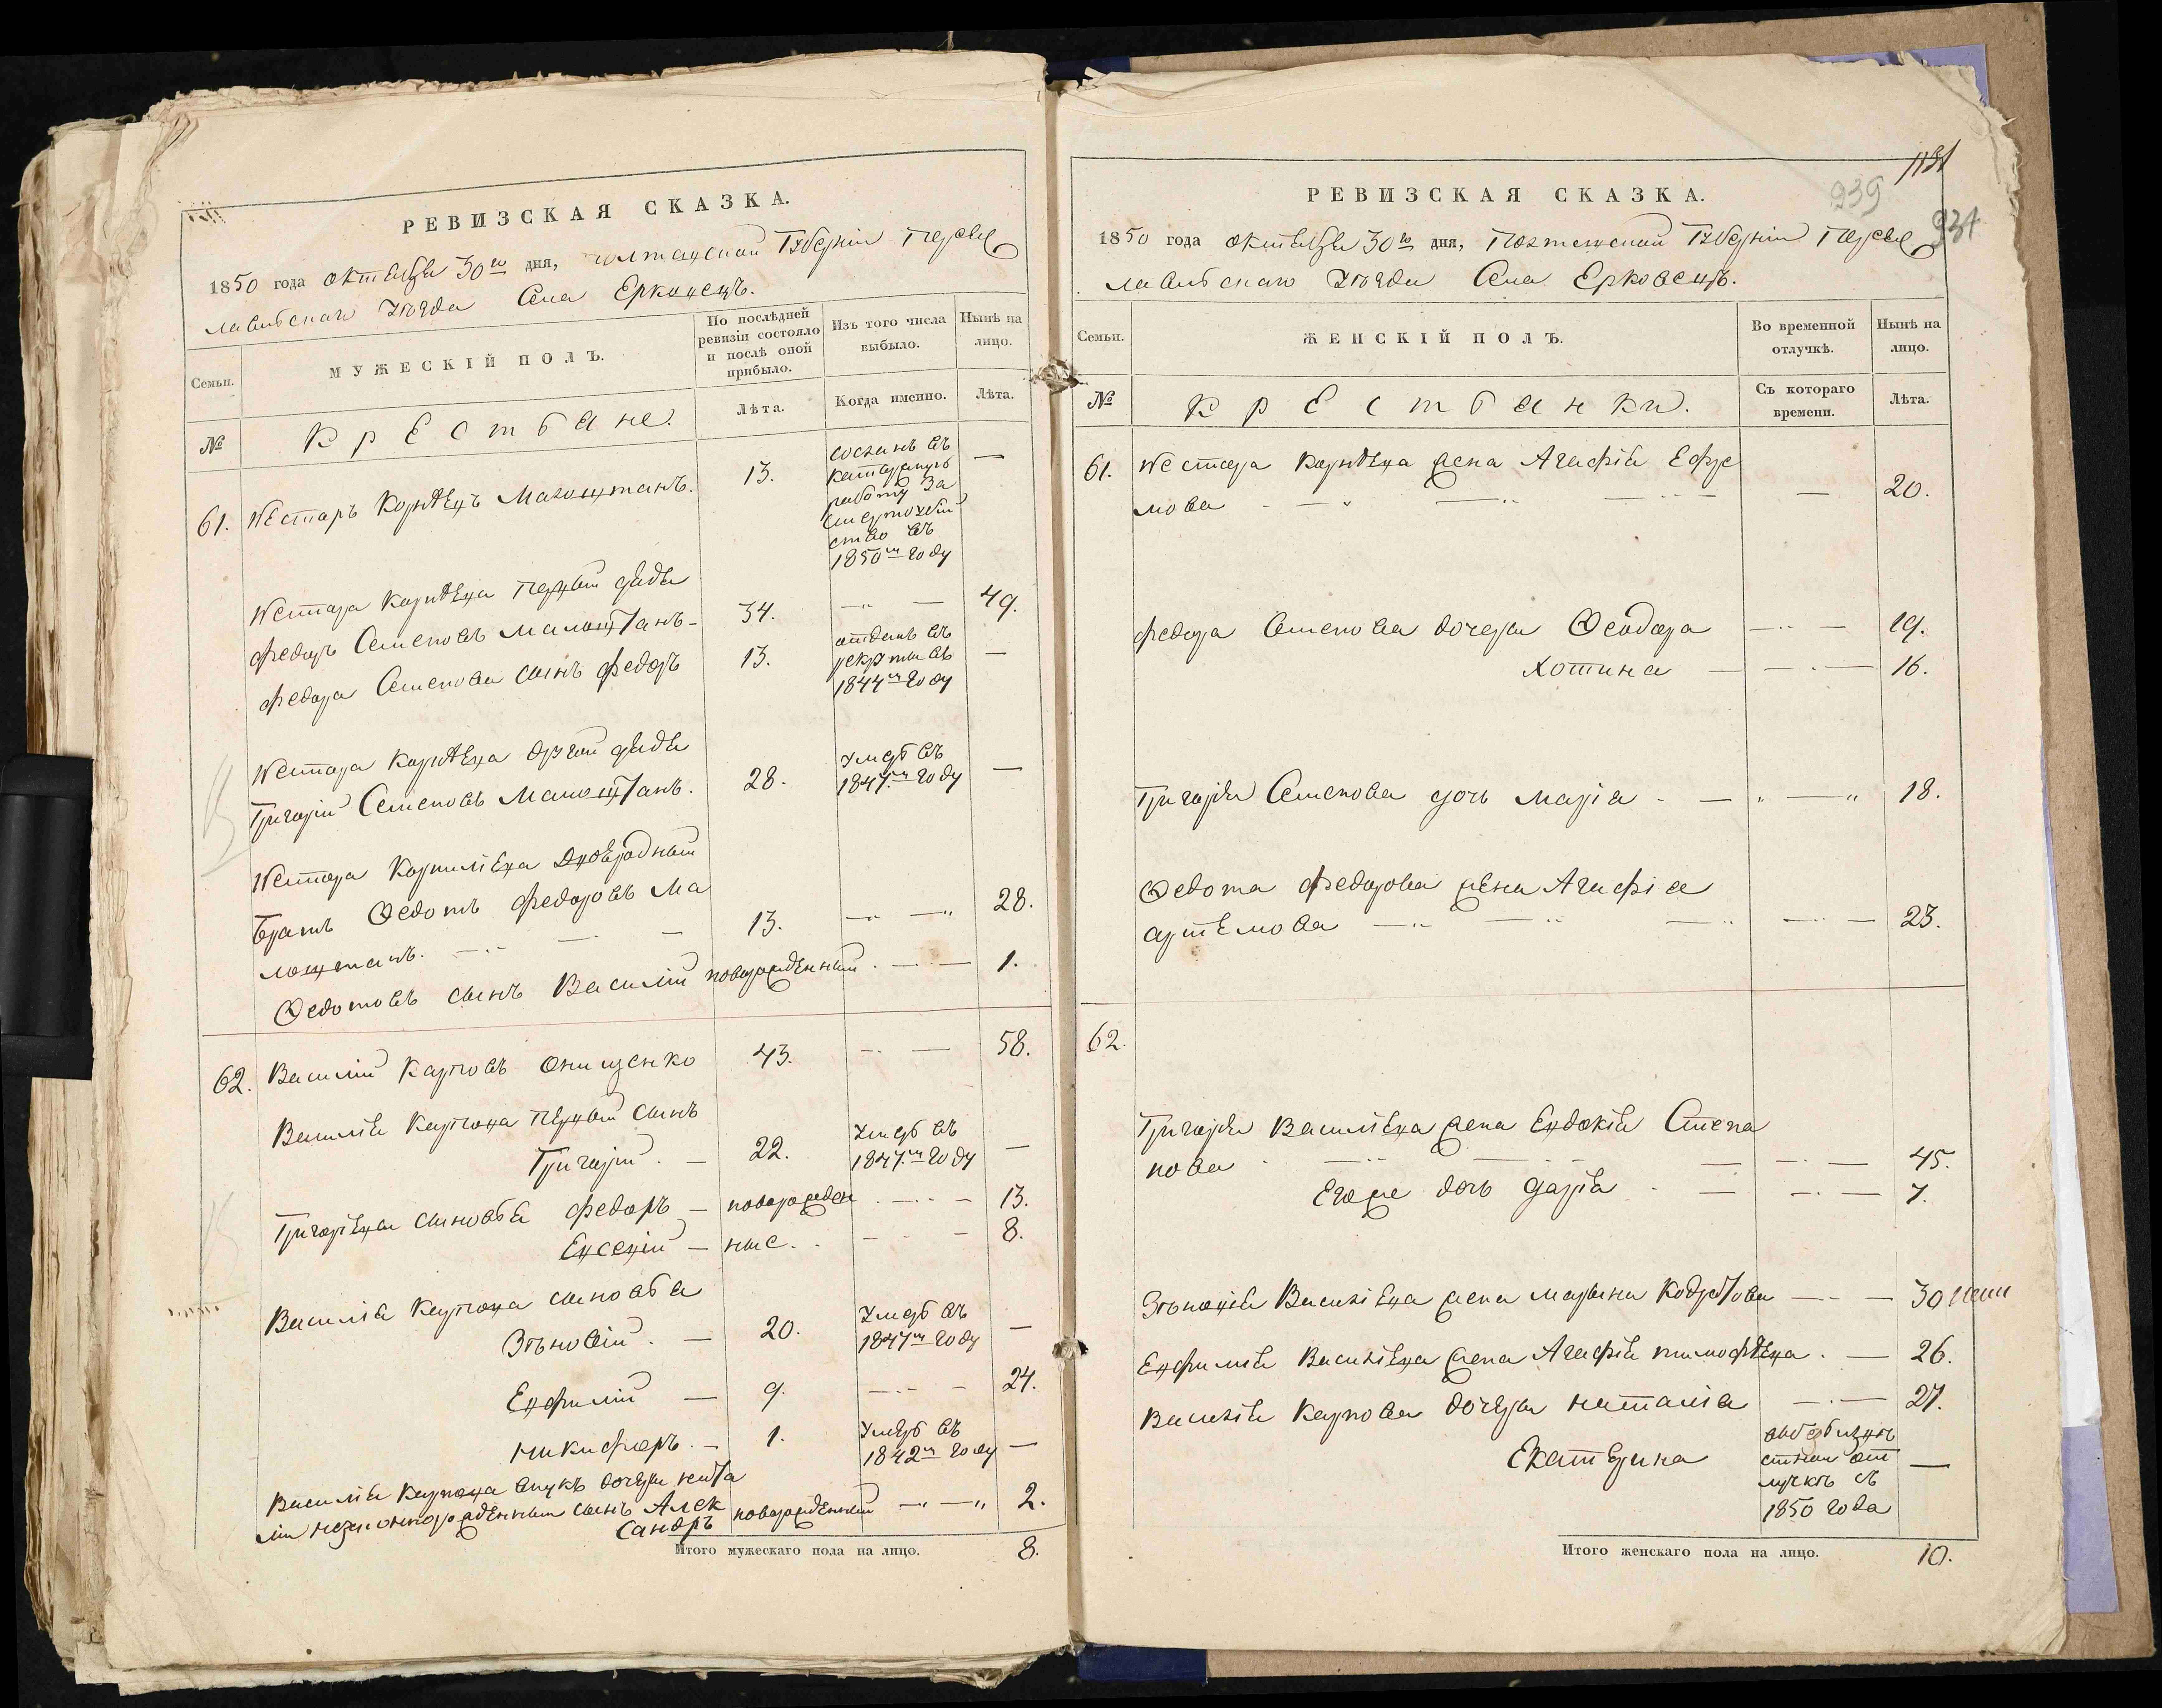 РЕВИЗСКАЯ СКАЗКА.
1850 года октября 30го дня, Полтавской Губерніи Переяс
лавскаго Уѣзда Села Ерковецъ.
Семьи.
МУЖЕСКІЙ ПОЛЪ.
По послѣдней ревизіи состояло и послѣ оной прибыло.
Изъ того числа выбыло.
Нынѣ на лицо.
№
Крестьяне.
Лѣта.
Когда именно.
Лѣта.
61. Нестеръ Корнѣевъ Малоштанъ. 13. —
сосланъ въ
работу за
въ
1850м году
Нестера Корнѣева первый дядя
Федоръ Семеновъ Малоштанъ 34. — 49.
Федора Семенова сынъ Федоръ 13. —
отданъ въ
рекруты въ
1844м году
Нестера Корнѣева другой дядя
Григорій Семеновъ Малоштанъ. 28. —
Умеръ въ
1847м году
Нестера Корниліева двоюродный
братъ Федотъ Федоровъ Ма
лоштанъ. 13. — 28.
Федотовъ сынъ Василій новорожденный. — 1.
62. Василій Карповъ Онищенко 43. — 58.
Василія Карпова первый сынъ
Григорій. — 22. —
Умеръ въ
1847м году
Григорьева сыновья Федоръ — новорожден — 13.
Евсевій — ные. — 8.
Василія Карпова сыновья
Зѣновій. — 20. —
Умеръ въ
1847м году
Евфимій — 9. — 24.
Никифоръ. — 1. —
Умеръ въ
1842м году
Василія Карпова внукъ дочери Ната
ліи незаконнорожденный сынъ Алек
сандръ новорожденный — 2.
Итого мужескаго пола на лицо. 8.
1131
939
931
РЕВИЗСКАЯ СКАЗКА.
1850 года октября 30го дня, Полтавской Губерніи Переяс
лавскаго Уѣзда Села Ерковецъ.
Семьи.
ЖЕНСКІЙ ПОЛЪ.
Во временной отлучкѣ.
Нынѣ на лицо.
№
Крестьянки.
Съ котораго времени.
Лѣта.
61. Нестера Корнѣева жена Агафія Ефре
мова — 20.
Федора Семенова дочери Феодора — 19.
Хотина — 16.
Григорія Семенова дочь Марія — 18.
Федота Федорова жена Агафія
Артемова — 23.
62.
Григорія Васильева жена Евдокія Степа
нова — 45.
Егоже дочь Дарія — 7.
Зѣновія Васильева жена Марьина Кодратова — 30
Евфимія Васильева жена Агафія Тимофѣева. — 26.
Василія Карпова дочери Наталія — 27.
Екатерина —
от
лучкѣ съ
1850 года
Итого женскаго пола на лицо. 10.